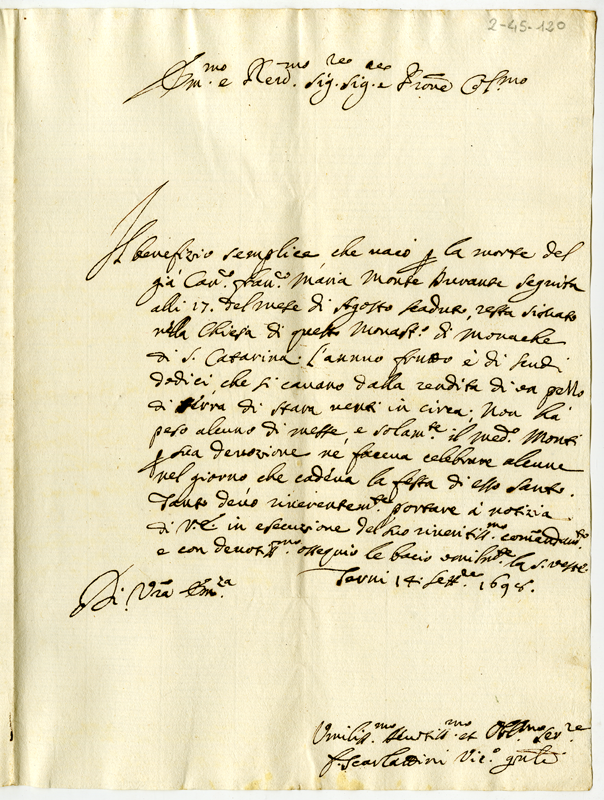 2-45-120
Em.mo e Rev.mo Sig.re Sig.re e Prone Col.mo
Il benefizio semplice che vacò p la morte del
già Can.co Fran.co Maria Monte seguita
alli 17. del mese di Agosto scaduto, resta situato
nella Chiesa di questo Monast.o di Monache
di S. Catarina. L'annuo frutto è di scudi
dodici, che si cavano dalla rendita di un pezzo
di terra di stara venti in circa. Non hà
peso alcuno di messe, e solam.te il med.o Monti
p sua devozione ne faceva celebrare alcune
nel giorno che cadeva la festa di esso Santo.
Tanto devo riverentem.te portare à notizia
di V.E. in esecuzione del suo riveritiss.mo comandam.to
e con devotiss.mo ossequio le bacio umilm.te la s. veste.
Di Vra Em.za Terni 14. Sett.re 1698.
Umiliss.mo Devotiss.mo et Obl.mo Ser.re
F. Scarlattini Vic.o gnle